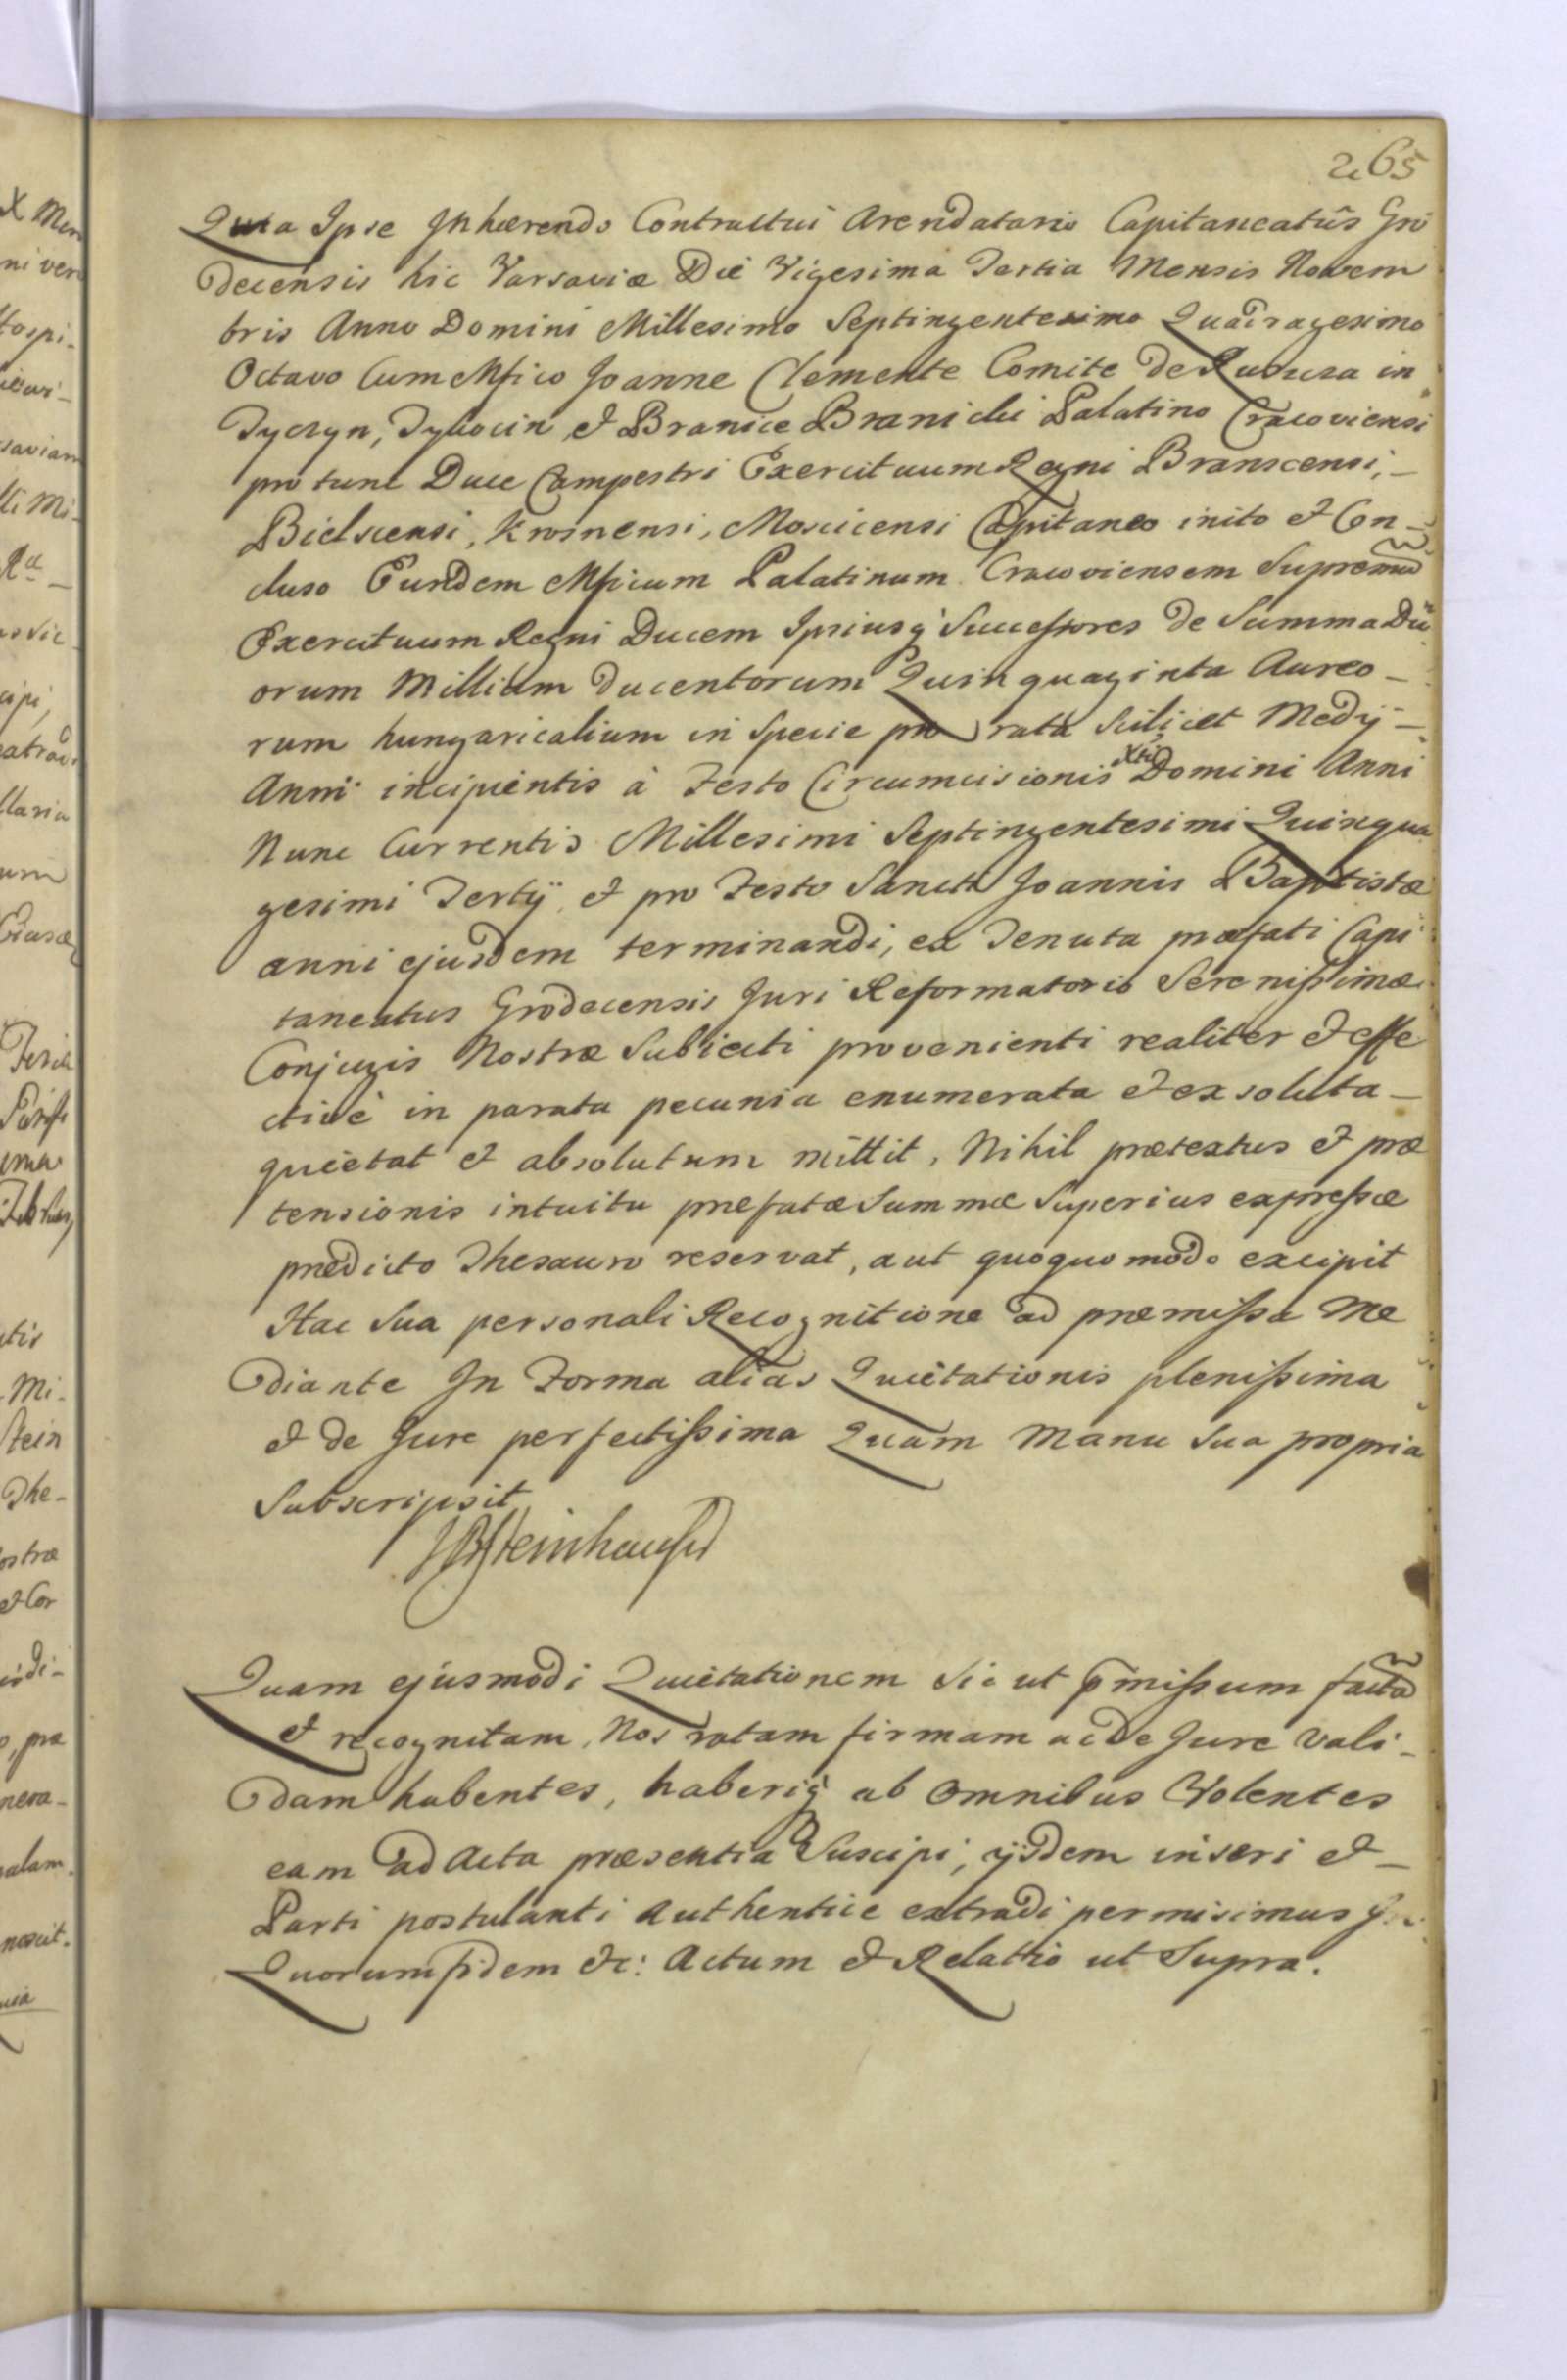 265
Quia Ipse Inhærendo Contractui Arendatario Capitaneatûs Gro
decensis hic Varsaviæ Die Vigesima Tertia Mensis Novem
bris Anno Domini Millesimo Septingentesimo Quadragesimo
Octavo Cum Mfico Joanne Clemente Comite de Ruszcza in
Tyczyn, Tykocin et Branice Branicki Palatino Cracoviensi
pro tunc Duce Campestri Exercituum Regni Branscensi,
Bielscensi, Krosnensi, Moscicensi Capitaneo inito et Con-
cluso Eundem Mficum Palatinum Cracoviensem Supremu
Exercituum Regni Ducem Ipsiusq Successores de Summa Du
orum Millium ducentorum Quinquaginta Aureo-
rum hungaricalium in Specie pro rata Scilicet Medij-
Anni incipientis à Festo Circumcisionis Xti Domini Anni
Nunc Currentis Millesimi Septingentesimi Quinqua
gesimi Tertÿ, et pro Festo Sancti Joannis Baptistæ
anni ejusdem terminandi, ex Tenuta præfati Capi
taneatus Grodecensis Juri Reformatorio Serenissimæ
Conjugis Nostræ Subiecti provenienti realiter et effe
ctivè in parata pecunia enumerata et exsoluta-
quietat et absolutum mittit, Nihil prætextus et præ
tensionis intuitu præfatæ Summæ Superius expressæ
prædicto Thesauro reservat, aut quoquo modo excipit
Hac Sua personali Recognitione ad præmissa Me
diante In Forma alias Quietationis plenissima
et de Jure perfectissima Quam Manu Sua propria
Subscripsit
Steinhauser
Quam ejusmodi Quietationem Sic ut pmissum facta
et recognitam, Nos ratam firmam ac de Jure Vali-
dam habentes, haberiq ab omnibus Volentes
eam ad Acta præsentia Suscipi, ijsdem inseri et-
Parti postulanti Authentice extradi permisimus In
Quorum fidem etc: Actum et Relatio ut Supra.